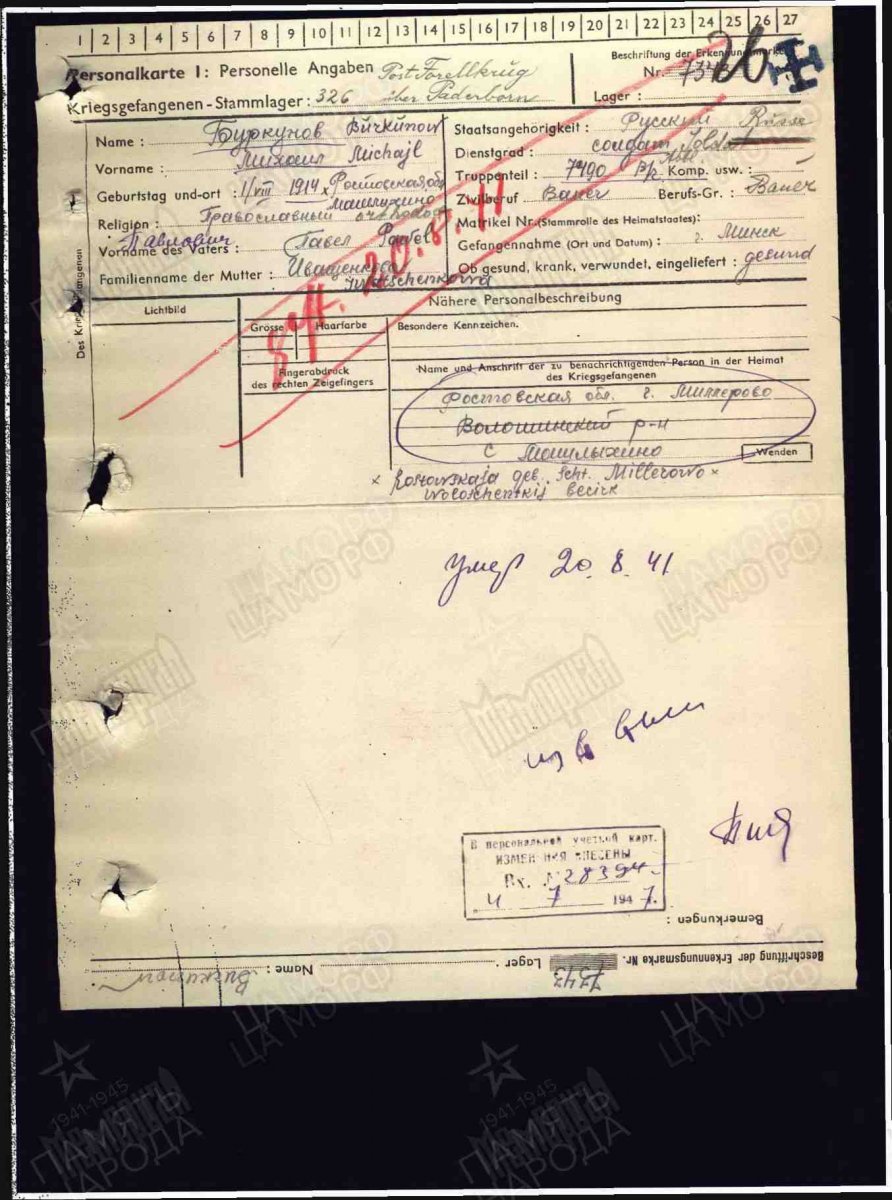 1 2 3 4 5 6 7 8 9 10 11 12 13 14 15 16 17 18 19 20 21 22 23 24 25 26 27
Personalkarte I: Personelle Angaben Post Forellkrug
Kriegsgefangenen-Stammlager: 326 über Paderborn
Beschriftung der Erkennungsmarke
Nr. 7343 26
Lager:
Des Kriegsgefangenen
Name: Буркунов Burkunow
Vorname: Михаил Michajl
Geburtstag und-ort: 1/VIII 1914 x Ростовская об
Машлыхино
Religion: Православный orthodox
Павлович
Vorname des Vaters: Павел Pawel
Familienname der Mutter: Иващенкова
Iwaschenkowa
Staatsangehörigkeit: Русский Russe
Dienstgrad: солдат Soldat
Truppenteil: 7490 Komp. usw.:
Zivilberuf Bauer Berufs-Gr.: Bauer
Matrikel Nr. (Stammrolle des Heimatstaates):
Gefangennahme (Ort und Datum): г. Минск
Ob gesund, krank, verwundet, eingeliefert: gesund
gest. 20.8.41
Lichtbild
Nähere Personalbeschreibung
Grösse Haarfarbe Besondere Kennzeichen.
Fingerabdruck
des rechten Zeigefingers
Name und Anschrift der zu benachrichtigenden Person in der Heimat
des Kriegsgefangenen
Ростовская обл. г. Миллерово
Волошинский р-н
с Машлыхино
Wenden
x Rostowskaja geb. Scht. Millerowo x
Woloschenskij bezirk
Умер 20.8.41
В персональной учетной карт.
ИЗМЕНЕНИЯ ВНЕСЕНЫ
Вх. № 28394
4 7 1947.
Bemerkungen:
Beschriftung der Erkennungsmarke Nr. 7343 Lager: Name: Burkunow
ЦАМО РФ
ЦАМО РФ
1941-1945
ПАМЯТЬ
НАРОДА